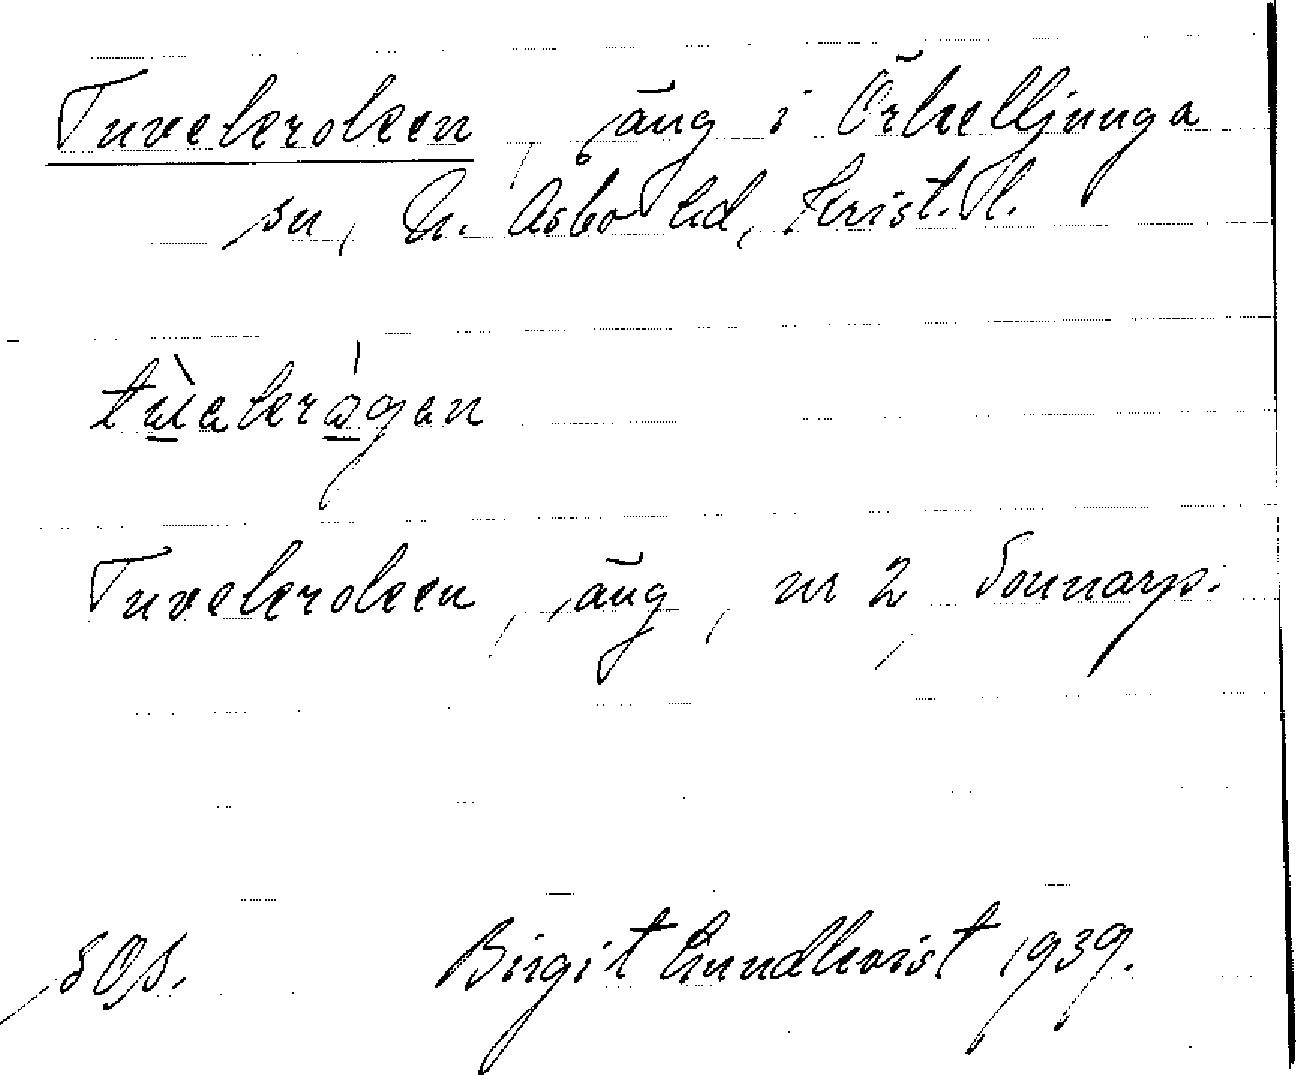 Tuvekroken, äng i Örkelljunga
sn, N. Åsbo hd, Krist. l.
tùekrågan
Tuvekroken, äng, nr 2 Sonnarp.
SOS. Birgit Lundkvist 1939.